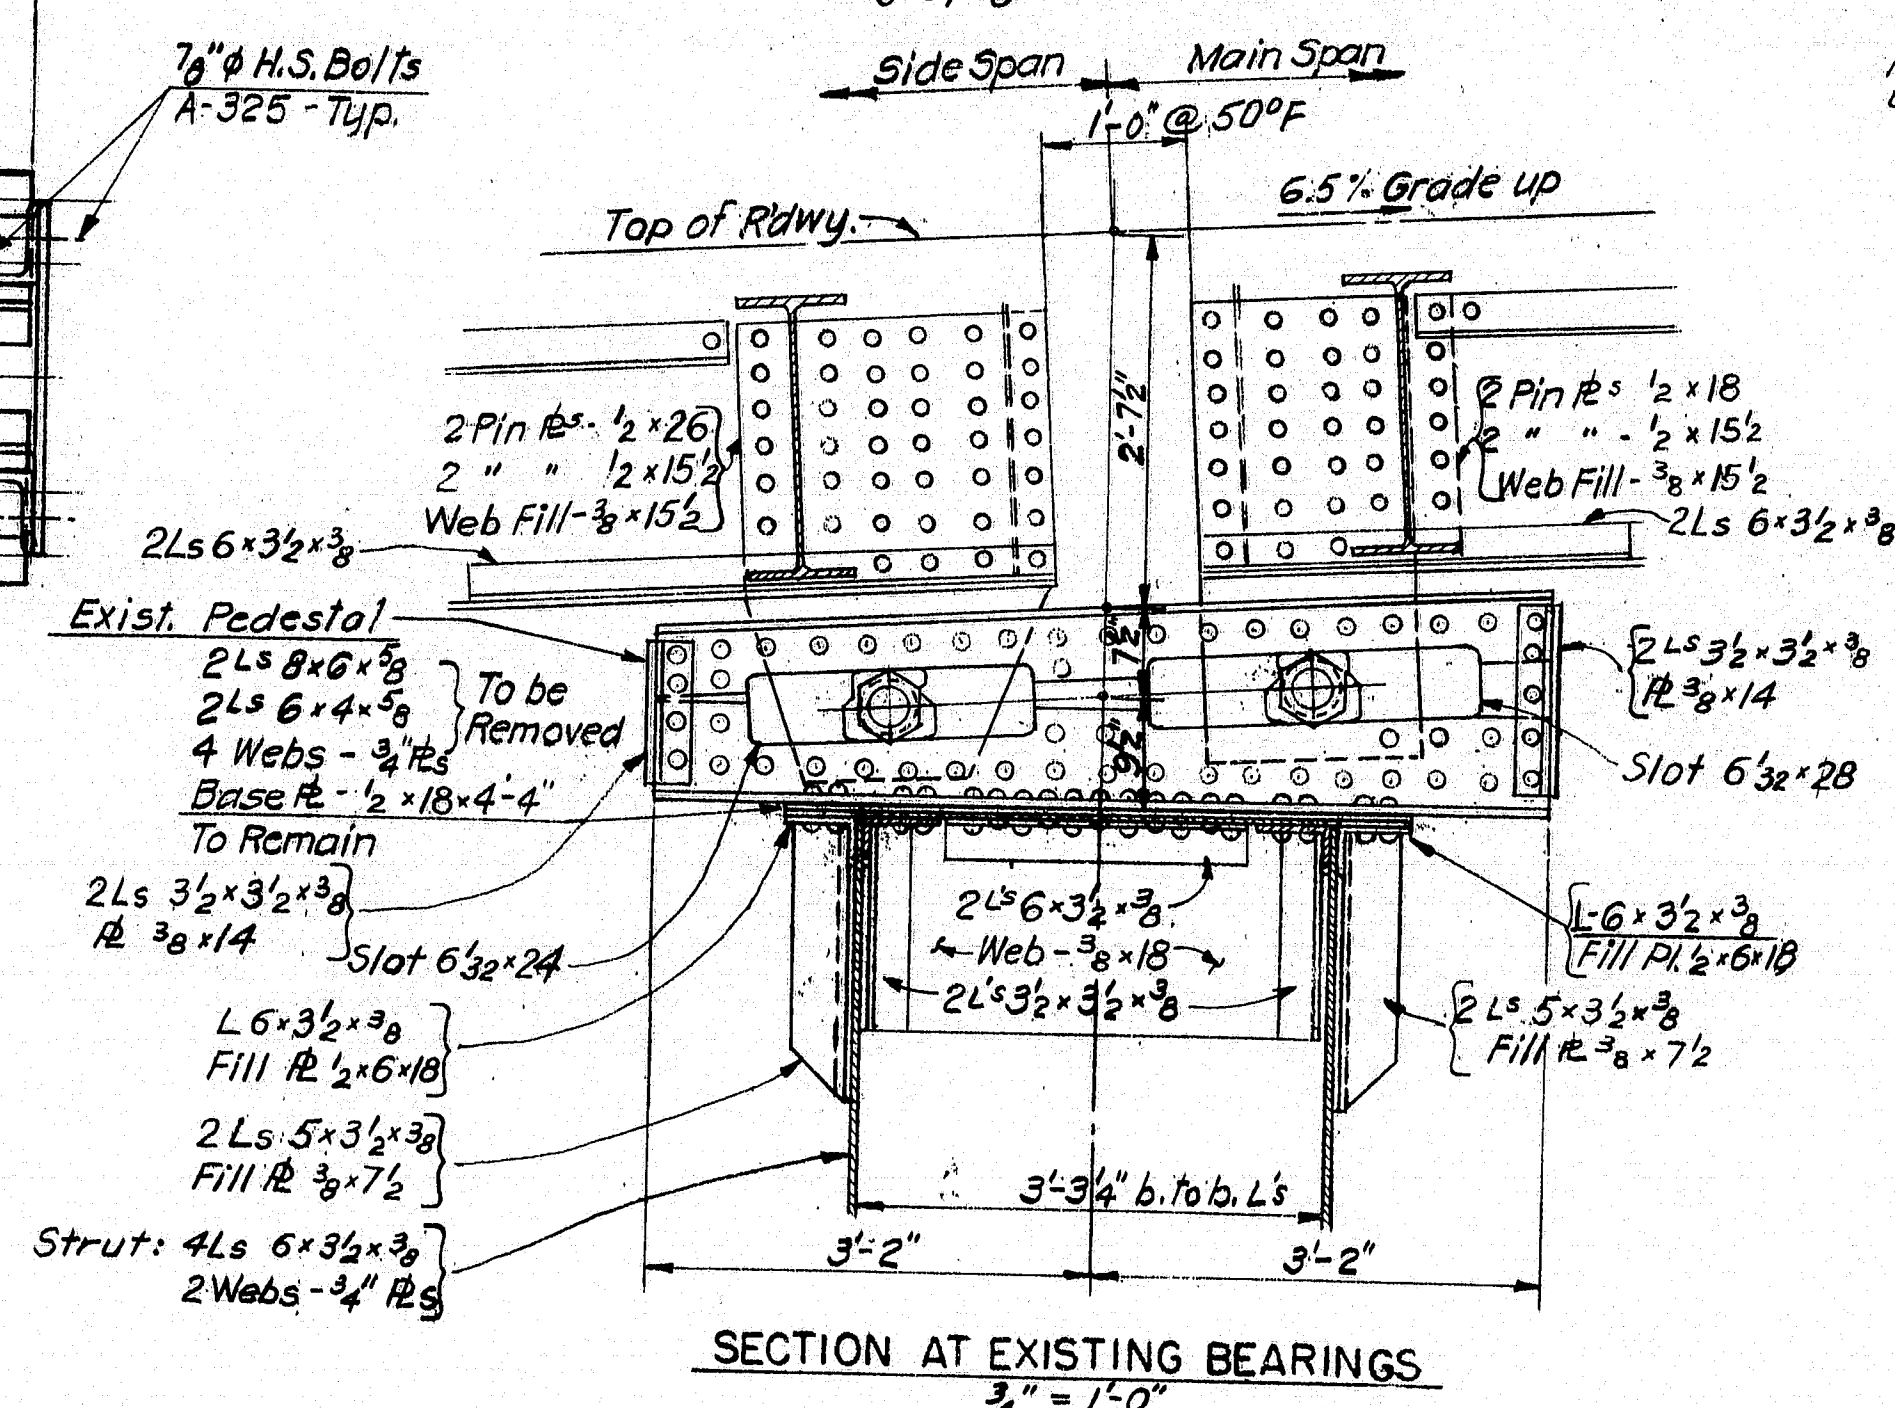 7/8"φ H.S. Bolts
A-325 - Typ.
Side Span
Main Span
1'-0" @ 50°F
6.5% Grade up
Top of R'dwy.
2'-7½"
2 Pin ℞s - ½ × 26
2 " " ½ × 15½
Web Fill - ⅜ × 15½
2Ls 6 × 3½ × ⅜
2 Pin ℞s ½ × 18
2 " " - ½ × 15½
Web Fill - ⅜ × 15½
2Ls 6 × 3½ × ⅜
Exist. Pedestal
2Ls 8 × 6 × ⅝
2Ls 6 × 4 × ⅝
4 Webs - ¾" ℞s
To be
Removed
Base ℞ - ½ × 18 × 4'-4"
To Remain
7½"
9½"
2Ls 3½ × 3½ × ⅜
℞ ⅜ × 14
Slot 6 1/32 × 28
2Ls 3½ × 3½ × ⅜
℞ ⅜ × 14
Slot 6 1/32 × 24
2L's 6 × 3½ × ⅜
Web - ⅜ × 18
2L's 3½ × 3½ × ⅜
L-6 × 3½ × ⅜
Fill Pl. ½ × 6 × 18
2 Ls 5 × 3½ × ⅜
Fill ℞ ⅜ × 7½
L 6 × 3½ × ⅜
Fill ℞ ½ × 6 × 18
2 Ls 5 × 3½ × ⅜
Fill ℞ ⅜ × 7½
Strut: 4Ls 6 × 3½ × ⅜
2 Webs - ¾" ℞s
3'-3¼" b. to b. L's
3'-2"
3'-2"
SECTION AT EXISTING BEARINGS
¾" = 1'-0"